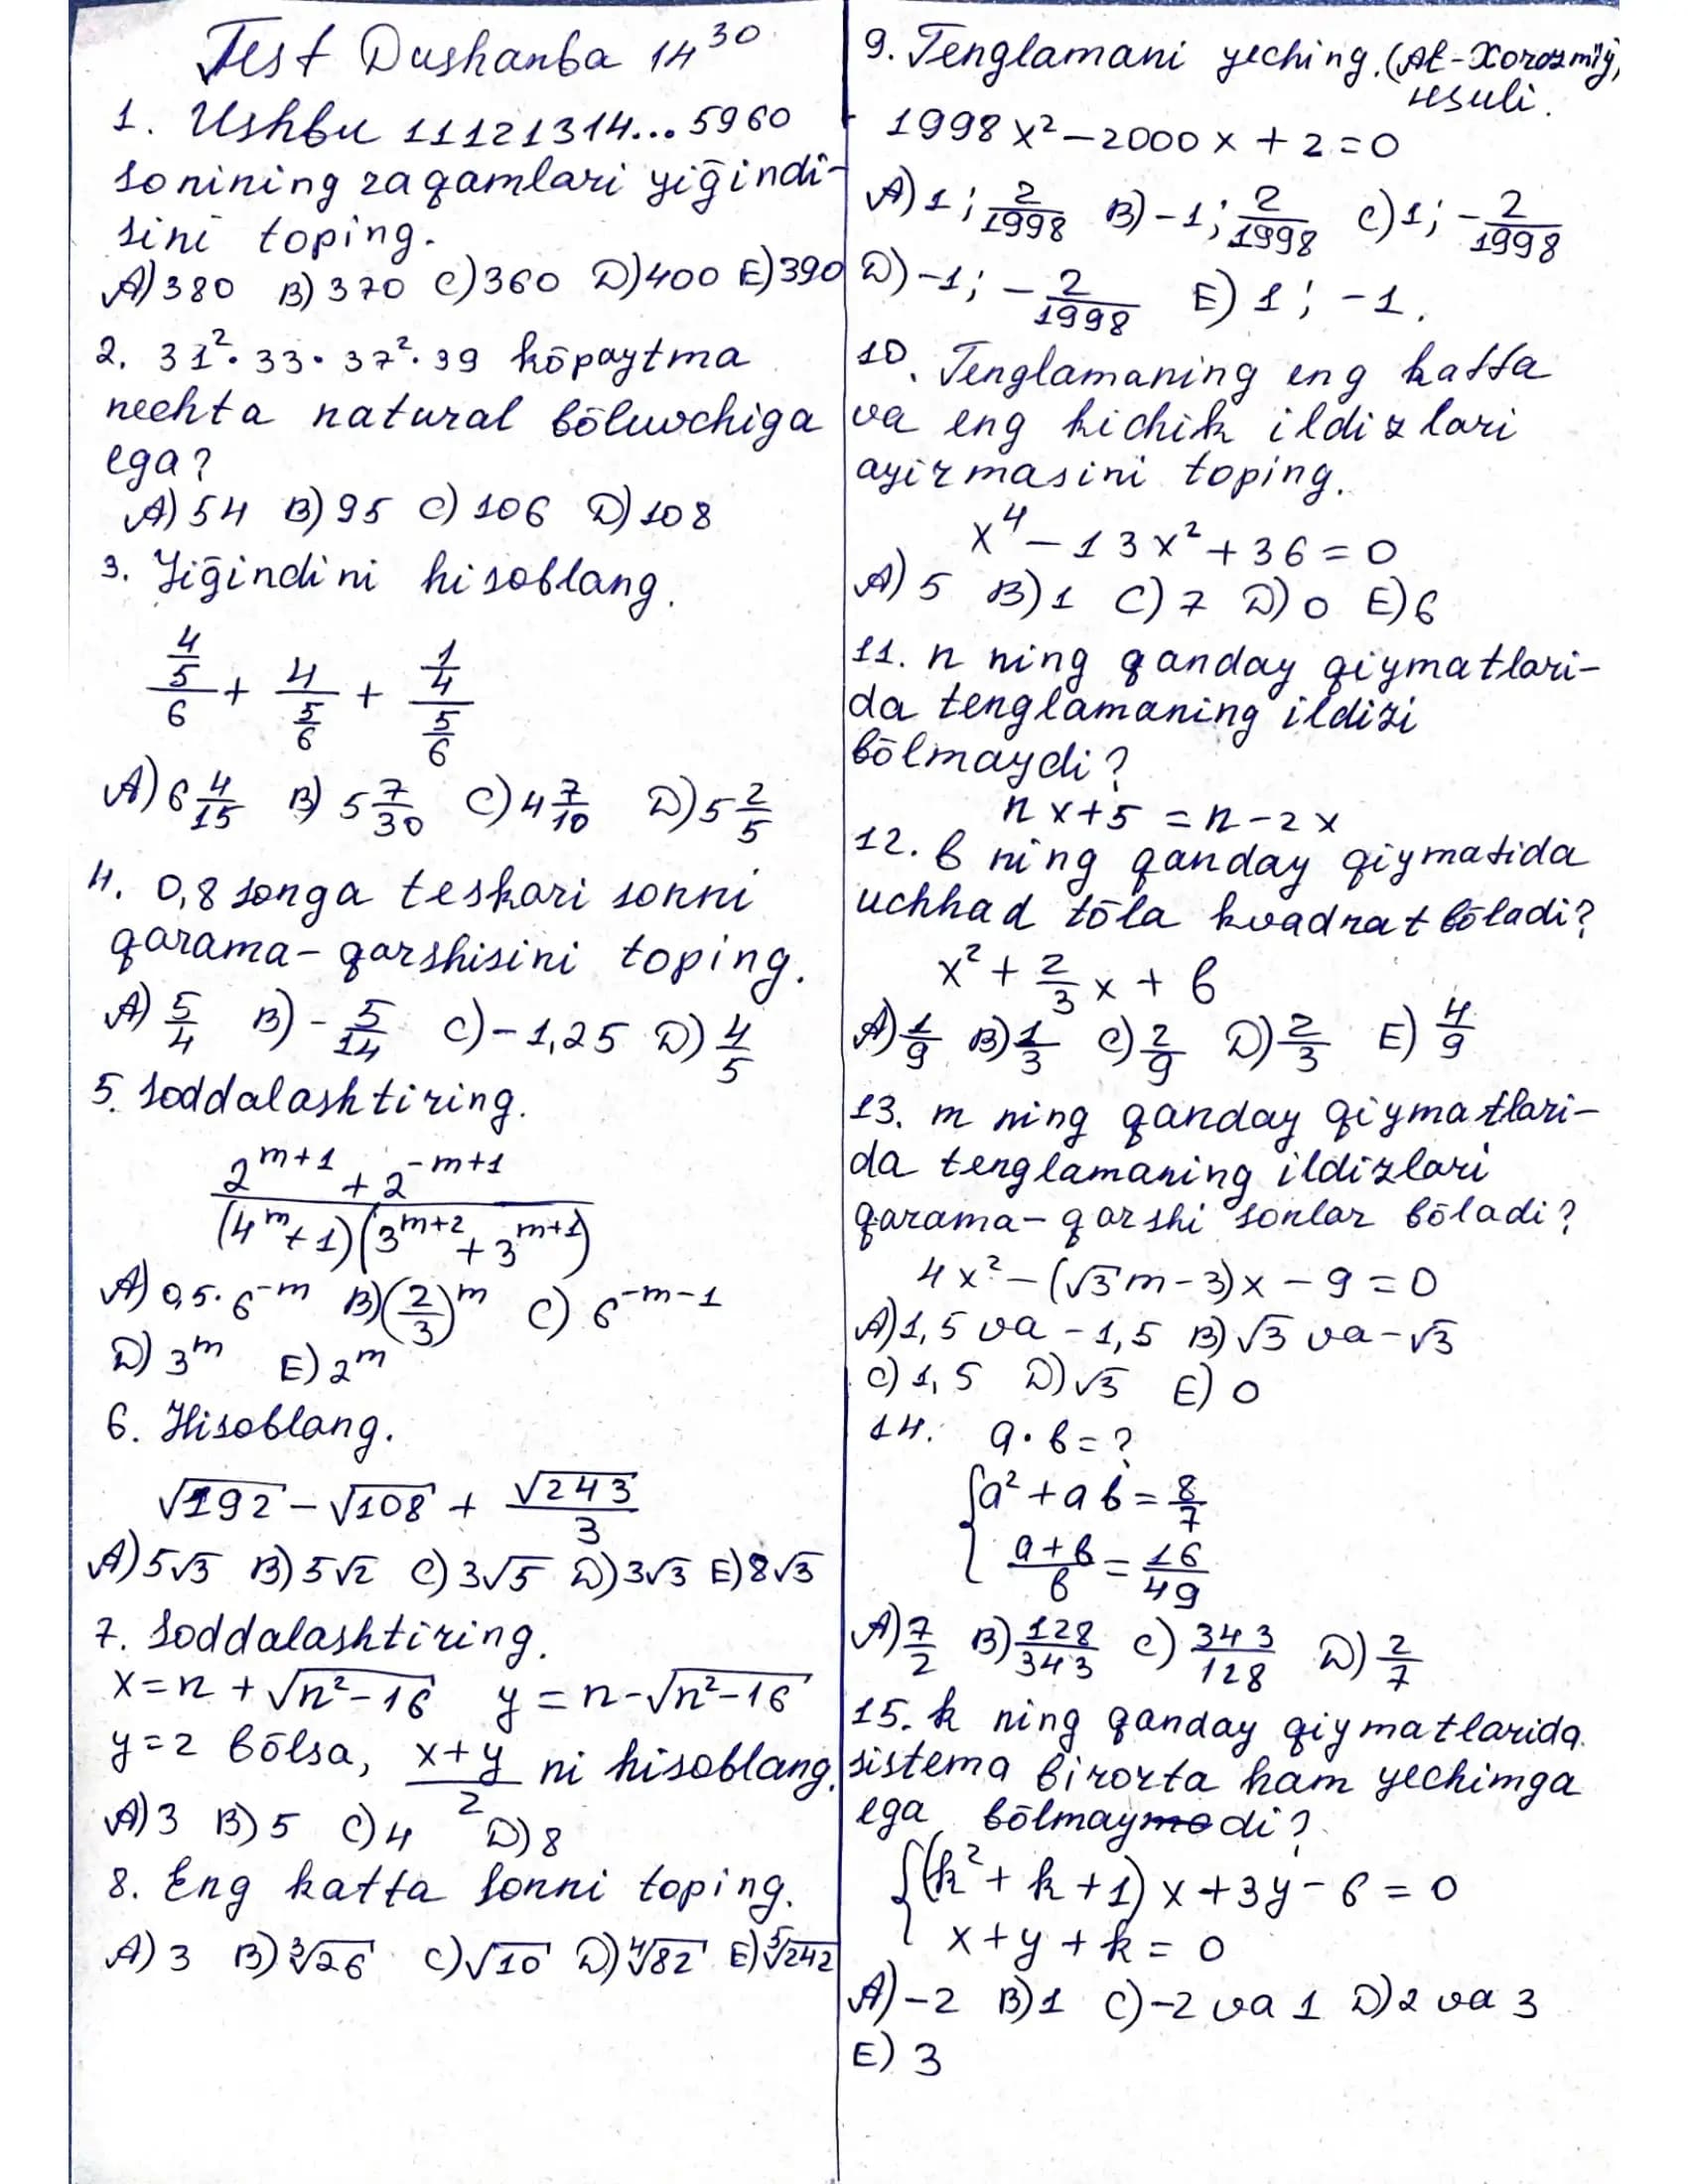 Test Dushanba 14³⁰
1. Ushbu 11121314...5960
sonining raqamlari yiḡindi-
sini toping.
A) 380 B) 370 C) 360 D) 400 E) 390
2. 31²·33·37²·39 kōpaytma
nechta natural bōluvchiga
ega?
A) 54 B) 95 C) 106 D) 108
3. Yiḡindini hisoblang.
(4/5)/6 + 4/(5/6) + (1/4)/(5/6)
A) 6 4/15 B) 5 7/30 C) 4 7/10 D) 5 2/5
4. 0,8 songa teskari sonni
qarama-qarshisini toping.
A) 5/4 B) -5/14 C) -1,25 D) 4/5
5. Soddalashtiring.
(2^(m+1) + 2^(-m+1)) / ((4^m + 1)(3^(m+2) + 3^(m+1)))
A) 0,5·6^(-m) B) (2/3)^m C) 6^(-m-1)
D) 3^m E) 2^m
6. Hisoblang.
√192 - √108 + √243/3
A) 5√3 B) 5√2 C) 3√5 D) 3√3 E) 8√3
7. Soddalashtiring.
x = n + √(n²-16) y = n - √(n²-16)
y=2 bōlsa, (x+y)/2 ni hisoblang.
A) 3 B) 5 C) 4 D) 8
8. Eng katta sonni toping.
A) 3 B) ³√26 C) √10 D) ⁴√82 E) ⁵√242
9. Tenglamani yeching. (Al-Xorazmiy,
usuli.
1998x² - 2000x + 2 = 0
A) 1; 2/1998 B) -1; 2/1998 C) 1; -2/1998
D) -1; -2/1998 E) 1; -1.
10. Tenglamaning eng katta
va eng kichik ildizlari
ayirmasini toping.
x⁴ - 13x² + 36 = 0
A) 5 B) 1 C) 7 D) 0 E) 6
11. n ning qanday qiymatlari-
da tenglamaning ildizi
bōlmaydi?
nx+5 = n-2x
12. b ning qanday qiymatida
uchhad tōla kvadrat bōladi?
x² + 2/3 x + b
A) 1/9 B) 1/3 C) 2/9 D) 2/3 E) 4/9
13. m ning qanday qiymatlari-
da tenglamaning ildizlari
qarama-qarshi sonlar bōladi?
4x² - (√3m - 3)x - 9 = 0
A) 1,5 va -1,5 B) √3 va -√3
C) 1,5 D) √3 E) 0
14. a·b = ?
{ a² + ab = 8/7
(a+b)/b = 16/49
A) 7/2 B) 128/343 C) 343/128 D) 2/7
15. k ning qanday qiymatlarida
sistema birorta ham yechimga
ega bōlmaydi?
{ (k² + k + 1)x + 3y - 6 = 0
x + y + k = 0
A) -2 B) 1 C) -2 va 1 D) 2 va 3
E) 3